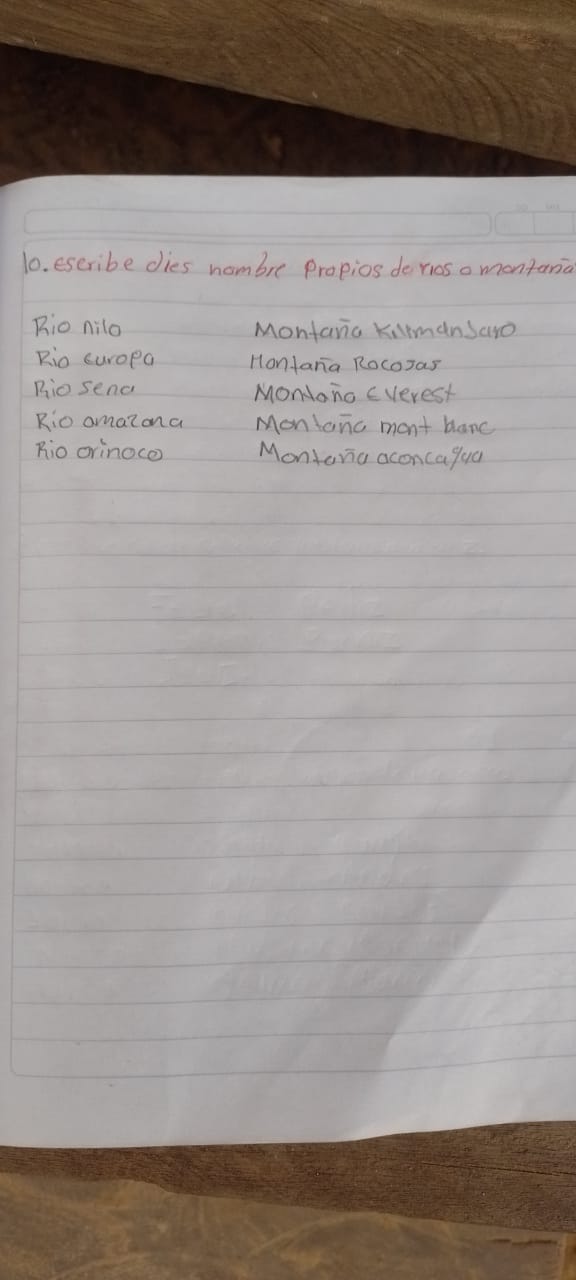 10. escribe dies nombre propios de rios o montaña
Rio nilo Montaña Kilimanjaro
Rio europa Montaña Rocosas
Rio sena Montaña Everest
Rio amazona Montaña mont blanc
Rio orinoco Montaña aconcagua